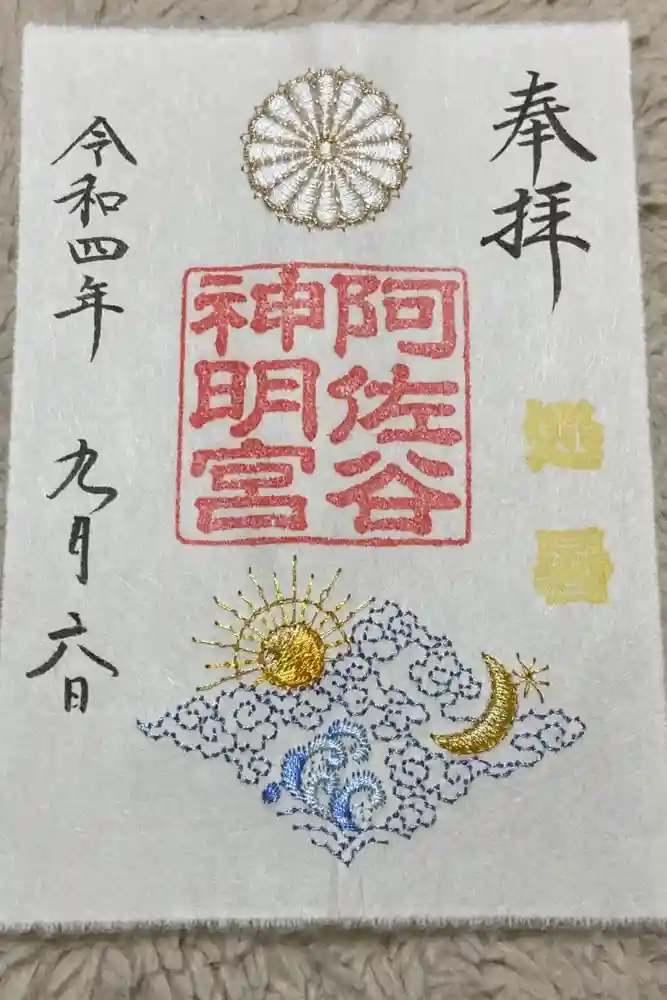 奉拝
処暑
阿佐谷
神明宮
令和四年 九月六日